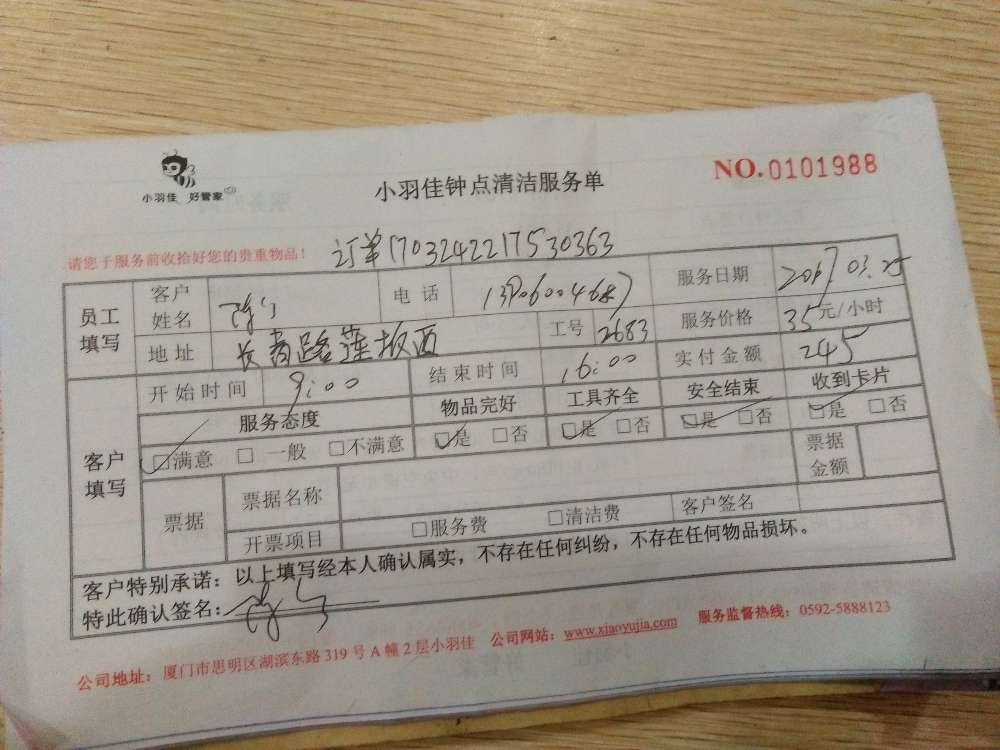 小羽佳 好管家
小羽佳钟点清洁服务单
NO.0101988
请您于服务前收拾好您的贵重物品！
订单1703242217530363
员工填写 客户姓名 电话 13906004687 服务日期 2017.03.25
地址 长青路莲坂西 工号 2683 服务价格 35元/小时
客户填写 开始时间 9:00 结束时间 16:00 实付金额 245
服务态度 物品完好 工具齐全 安全结束 收到卡片
□满意 □一般 □不满意 □是 □否 □是 □否 □是 □否 □是 □否
票据 票据名称 票据金额
开票项目 □服务费 □清洁费 客户签名
客户特别承诺：以上填写经本人确认属实，不存在任何纠纷，不存在任何物品损坏。
特此确认签名：
公司地址：厦门市思明区湖滨东路319号A幢2层小羽佳 公司网站：www.xiaoyujia.com 服务监督热线：0592-5888123